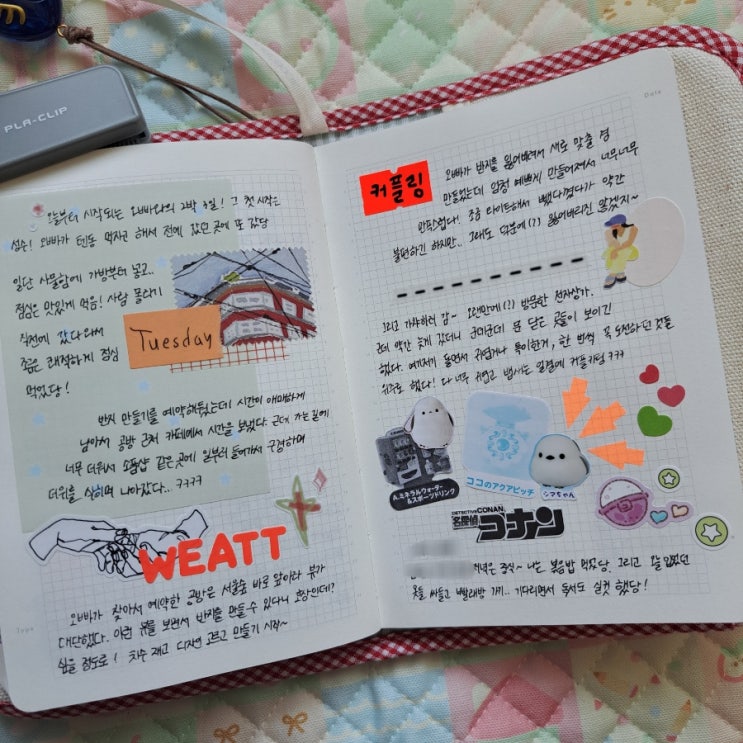 PLA-CLIP
오늘부터 시작되는 오빠와의 2박 3일! 그 첫 시작은
성수! 오빠가 텐동 먹자고 해서 전에 갔던 곳에 또 갔당
일단 사물함에 가방부터 넣고..
점심은 맛있게 먹음! 사람 몰리기
직전에 갔다와서
조금은 쾌적하게 점심
먹었당!
Tuesday
반지 만들기를 예약해뒀는데 시간이 애매하게
남아서 공방 근처 카페에서 시간을 보냈다. 근데 가는 길에
너무 더워서 소품샵 같은 곳에 일부러 들어가서 구경하며
더위를 식히며 나아갔다... ㅋㅋㅋㅋ
WEATT
오빠가 찾아서 예약한 공방은 서울숲 바로 앞이라 뷰가
대단했다. 이런 뷰를 보면서 반지를 만들 수 있다니 호강인데?
싶을 정도로! 치수 재고 디자인 고르고 만들기 시작~
Date
커플링
오빠가 반지를 잃어버려서 새로 맞출 겸
만들었는데 엄청 예쁘게 만들어져서 너무너무
만족스럽다! 조금 타이트해서 뺐다꼈다가 약간
불편하긴 하지만.. 그래도 덕분에(?) 잃어버리진 않겠지~
그리고 가챠하러 감~ 오랜만에(?) 방문한 전자상가.
근데 약간 늦게 갔더니 군데군데 문 닫은 곳들이 보이긴
했다. 여기저기 돌면서 귀엽거나 특이한거, 한 번씩 꼭 도전하던 것들
위주로 했다! 다 너무 귀엽고 뱁새는 일결에 커플키링 ㅋㅋㅋ
A.ミネラルウォーター
&スポーツドリンク
ココのアクアピッチ
シマちゃん
DETECTIVE CONAN
名探偵
コナン
저녁은 중식~ 나는 볶음밥 먹었당. 그리고 오늘 입었던
옷들 싸들고 빨래방 가기.. 기다리면서 독서도 실컷 했당!